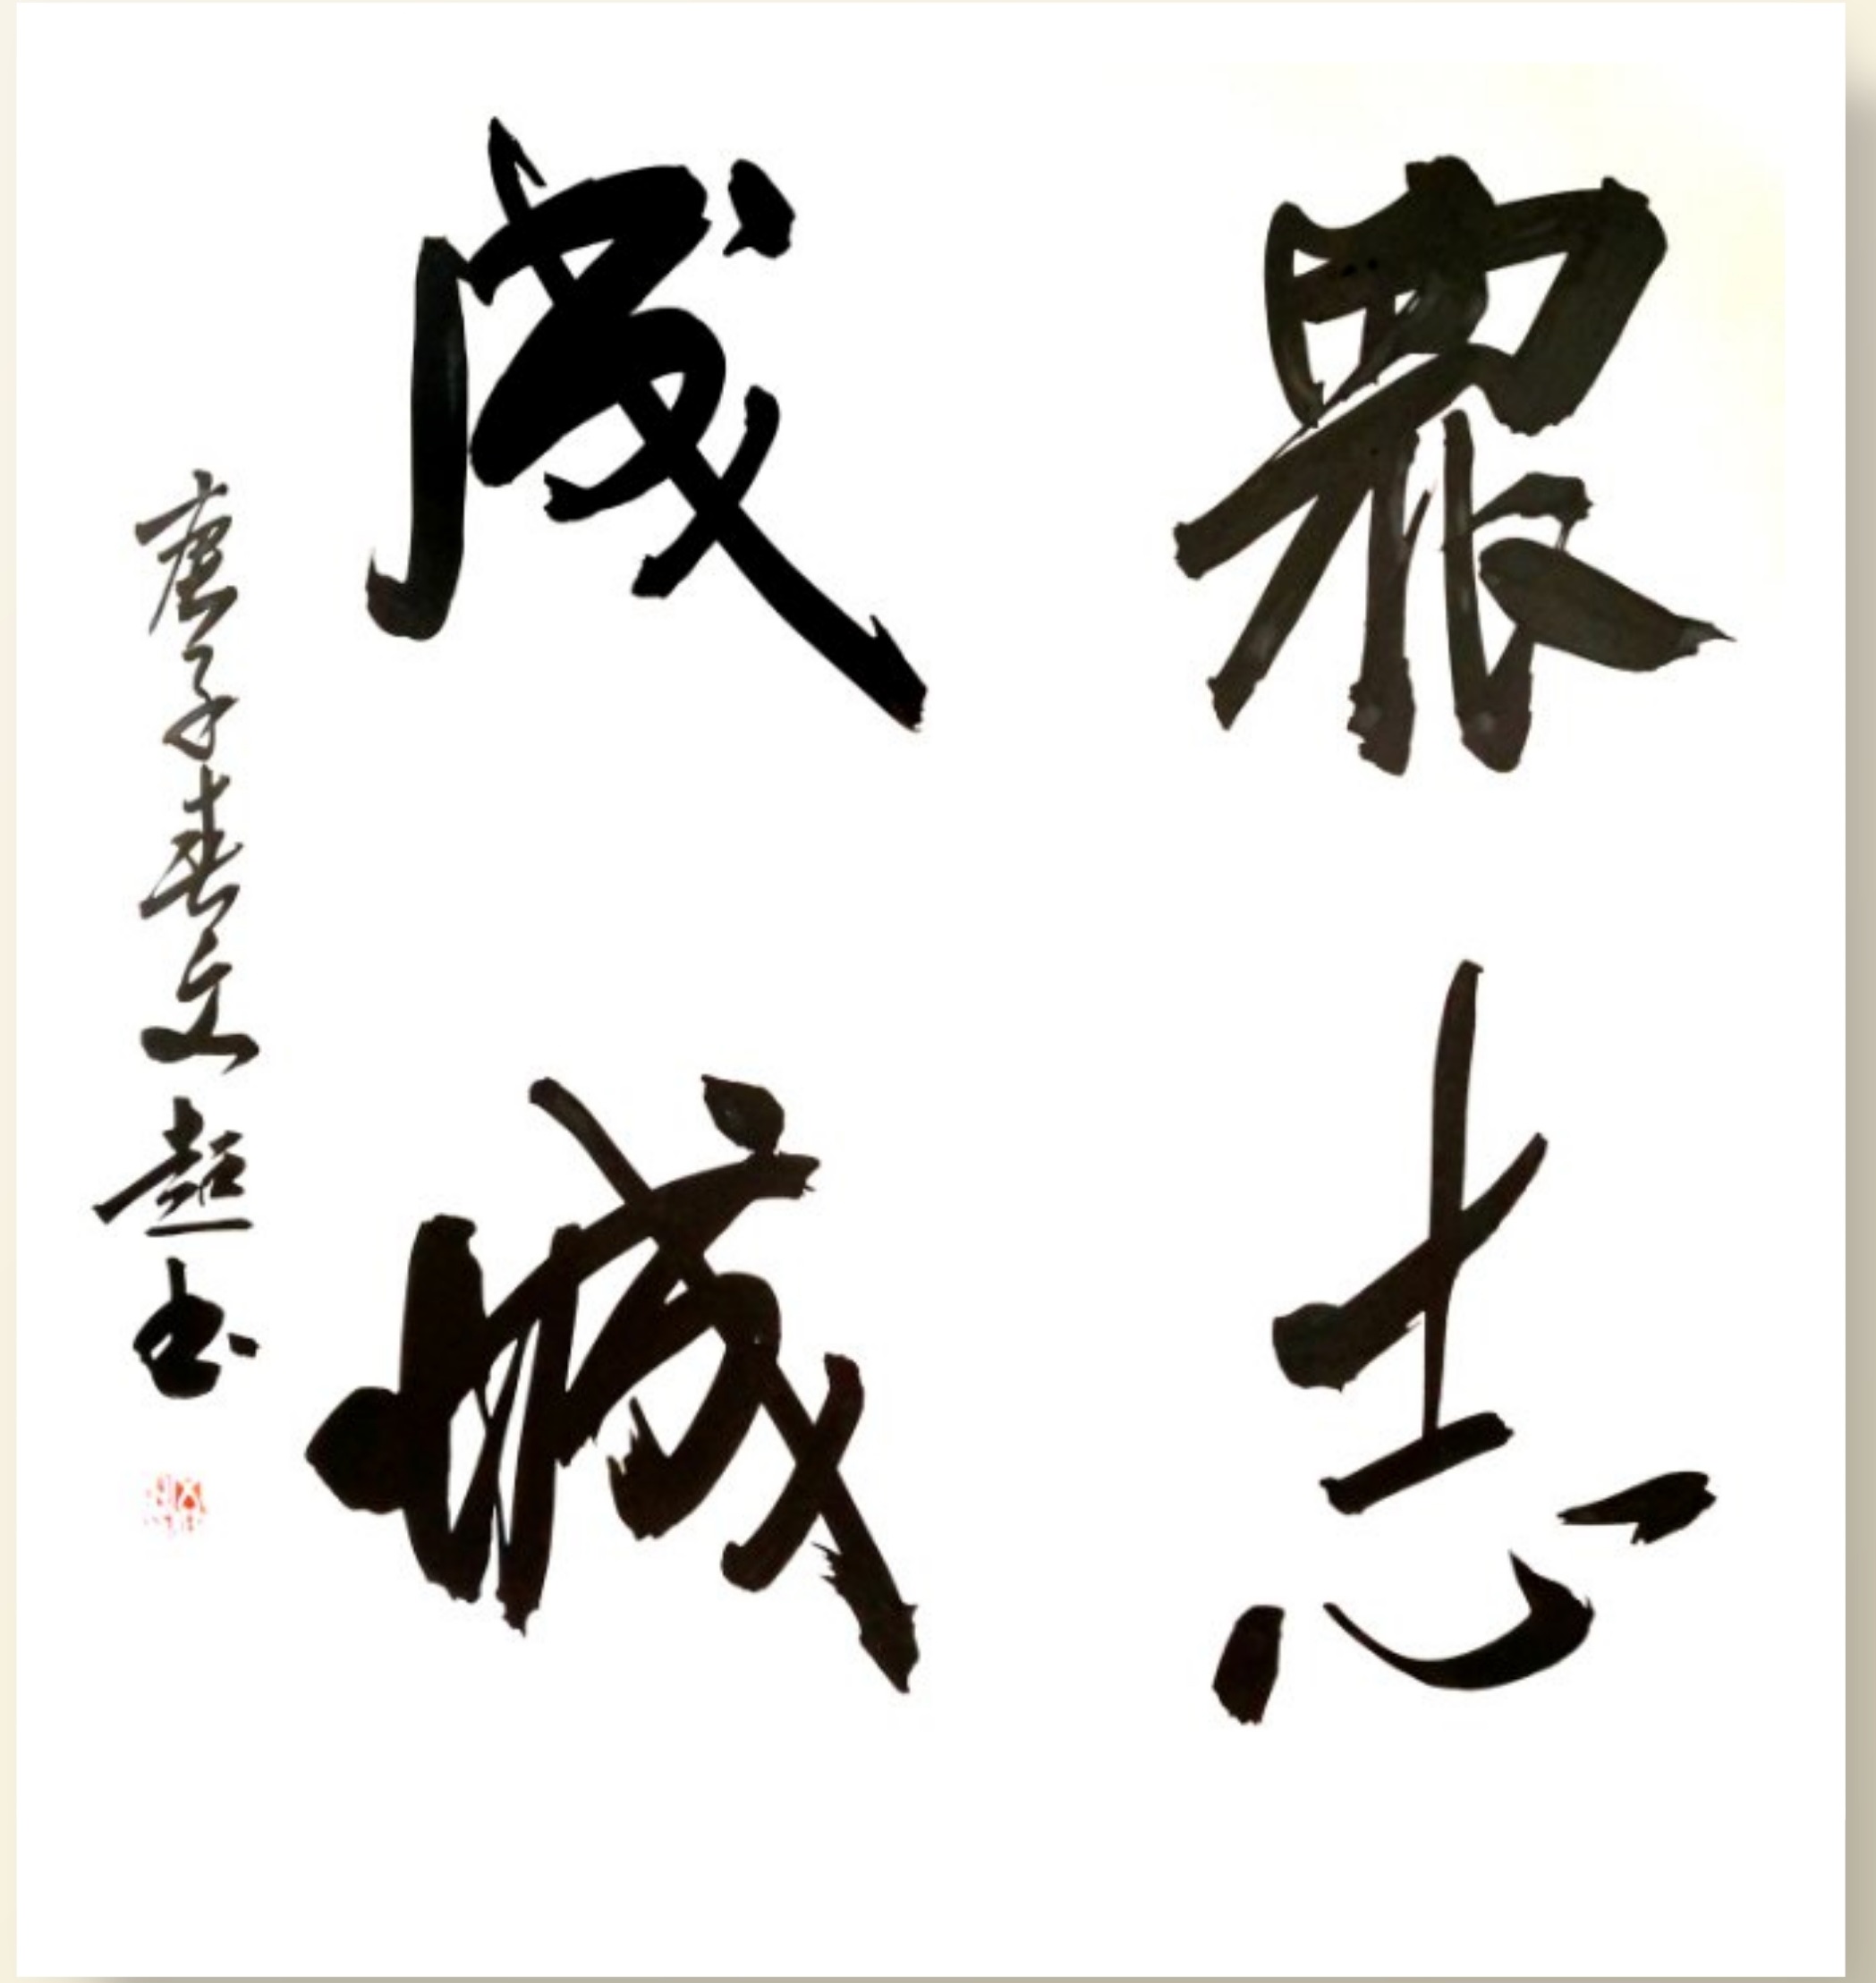 眾志
成城
庚子春文超书